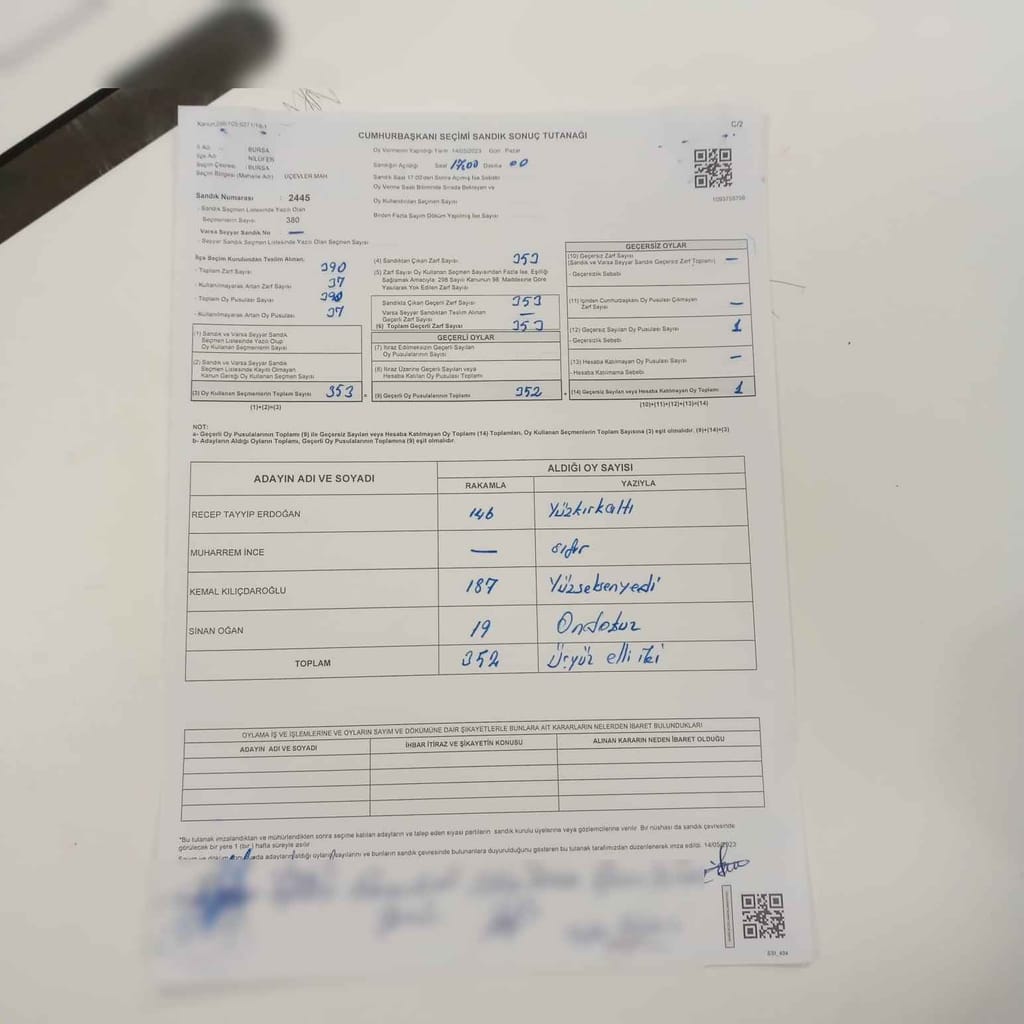 C/2
CUMHURBAŞKANI SEÇİMİ SANDIK SONUÇ TUTANAĞI
İl Adı : BURSA
İlçe Adı : NİLÜFER
Seçim Çevresi : BURSA
Seçim Bölgesi (Mahalle Adı) : ÜÇEVLER MAH
Sandık Numarası : 2445
- Sandık Seçmen Listesinde Yazılı Olan
Seçmenlerin Sayısı : 380
Varsa Seyyar Sandık No : —
- Seyyar Sandık Seçmen Listesinde Yazılı Olan Seçmen Sayısı
Oy Vermenin Yapıldığı Tarih 14/05/2023 Gün Pazar
Sandığın Açıldığı Saat 17,00 Dakika 00
Sandık Saat 17:00'den Sonra Açılmış İse Sebebi
Oy Verme Saati Bitiminde Sırada Bekleyen ve
Oy Kullandırılan Seçmen Sayısı
Birden Fazla Sayım Döküm Yapılmış İse Sayısı
1093758798
İlçe Seçim Kurulundan Teslim Alınan:
- Toplam Zarf Sayısı: 390
- Kullanılmayarak Artan Zarf Sayısı: 37
- Toplam Oy Pusulası Sayısı: 390
- Kullanılmayarak Artan Oy Pusulası: 37
(1) Sandık ve Varsa Seyyar Sandık
Seçmen Listesinde Yazılı Olup
Oy Kullanan Seçmenlerin Sayısı
(2) Sandık ve Varsa Seyyar Sandık
Seçmen Listesinde Kayıtlı Olmayan
Kanun Gereği Oy Kullanan Seçmen Sayısı
(3) Oy Kullanan Seçmenlerin Toplam Sayısı 353 =
(1)+(2)=(3)
(4) Sandıktan Çıkan Zarf Sayısı: 353
(5) Zarf Sayısı Oy Kullanan Seçmen Sayısından Fazla İse, Eşitliği
Sağlamak Amacıyla: 298 Sayılı Kanunun 98. Maddesine Göre
Yakılarak Yok Edilen Zarf Sayısı
Sandıkta Çıkan Geçerli Zarf Sayısı: 353
Varsa Seyyar Sandıktan Teslim Alınan
Geçerli Zarf Sayısı: —
(6) Toplam Geçerli Zarf Sayısı: 353
GEÇERLİ OYLAR
(7) İtiraz Edilmeksizin Geçerli Sayılan
Oy Pusulalarının Sayısı
(8) İtiraz Üzerine Geçerli Sayılan veya
Hesaba Katılan Oy Pusulası Toplamı
(9) Geçerli Oy Pusulalarının Toplamı 352 +
GEÇERSİZ OYLAR
(10) Geçersiz Zarf Sayısı
(Sandık ve Varsa Seyyar Sandık Geçersiz Zarf Toplamı) —
- Geçersizlik Sebebi
(11) İçinden Cumhurbaşkanı Oy Pusulası Çıkmayan
Zarf Sayısı —
(12) Geçersiz Sayılan Oy Pusulası Sayısı 1
- Geçersizlik Sebebi
(13) Hesaba Katılmayan Oy Pusulası Sayısı —
- Hesaba Katılmama Sebebi
(14) Geçersiz Sayılan veya Hesaba Katılmayan Oy Toplamı 1
(10)+(11)+(12)+(13)=(14)
NOT:
a- Geçerli Oy Pusulalarının Toplamı (9) ile Geçersiz Sayılan veya Hesaba Katılmayan Oy Toplamı (14) Toplamları, Oy Kullanan Seçmenlerin Toplam Sayısına (3) eşit olmalıdır. (9)+(14)=(3)
b- Adayların Aldığı Oyların Toplamı, Geçerli Oy Pusulalarının Toplamına (9) eşit olmalıdır.
ADAYIN ADI VE SOYADI ALDIĞI OY SAYISI
RAKAMLA YAZIYLA
RECEP TAYYİP ERDOĞAN 146 Yüzkırkaltı
MUHARREM İNCE — sıfır
KEMAL KILIÇDAROĞLU 187 Yüzseksenyedi
SİNAN OĞAN 19 Ondokuz
TOPLAM 352 Üçyüz elli iki
OYLAMA İŞ VE İŞLEMLERİNE VE OYLARIN SAYIM VE DÖKÜMÜNE DAİR ŞİKAYETLERLE BUNLARA AİT KARARLARIN NELERDEN İBARET BULUNDUKLARI
ADAYIN ADI VE SOYADI İHBAR İTİRAZ VE ŞİKAYETİN KONUSU ALINAN KARARIN NEDEN İBARET OLDUĞU
*Bu tutanak imzalandıktan ve mühürlendikten sonra seçime katılan adayların ve talep eden siyasi partilerin sandık kurulu üyelerine veya gözlemcilerine verilir. Bir nüshası da sandık çevresinde
görülecek bir yere 1 (bir) hafta süreyle asılır.
adayların aldığı oyların sayılarını ve bunların sandık çevresinde bulunanlara duyurulduğunu gösteren bu tutanak tarafımızdan düzenlenerek imza edildi. 14/05/2023